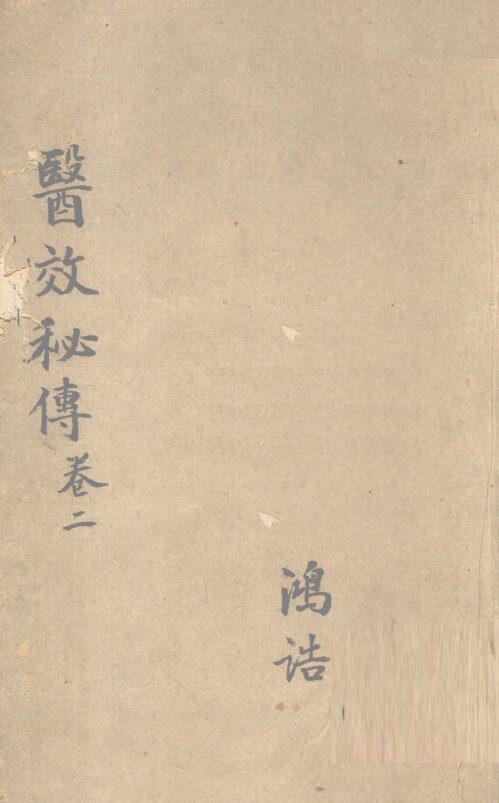 醫效秘傳卷二
鴻誥